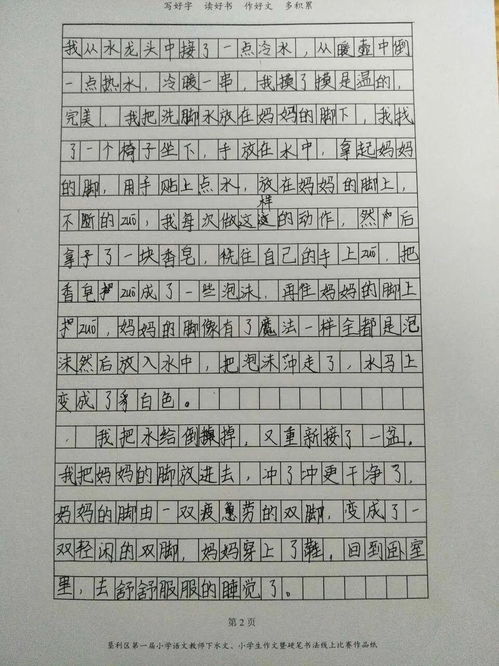 写好字 读好书 作好文 多积累
我从水龙头中接了一点冷水，从暖壶中倒
一点热水，冷暖一串，我摸了摸是温的，
完美，我把洗脚水放在妈妈的脚下，我找
了一个椅子坐下，手放在水中，拿起妈妈
的脚，用手贴上点水，放在妈妈的脚上，
不断的zuō，我每次做这样的动作，然后
拿予了一块香皂，往自己的手上zuō，把
香皂zuō成了一些泡沫，再往妈妈的脚上
zuō，妈妈的脚像有了魔法一样全都是泡
沫然后放入水中，把泡沫冲走了，水马上
变成了白色。
我把水给倒掉，又重新接了一盆。
我把妈妈的脚放进去，冲了冲更干净了，
妈妈的脚由一双疲惫劳的双脚，变成了一
双轻闲的双脚，妈妈穿上了鞋，回到卧室
里，去舒舒服服的睡觉了。
第2页
垦利区第一届小学语文教师下水文、小学生作文暨硬笔书法线上比赛作品纸